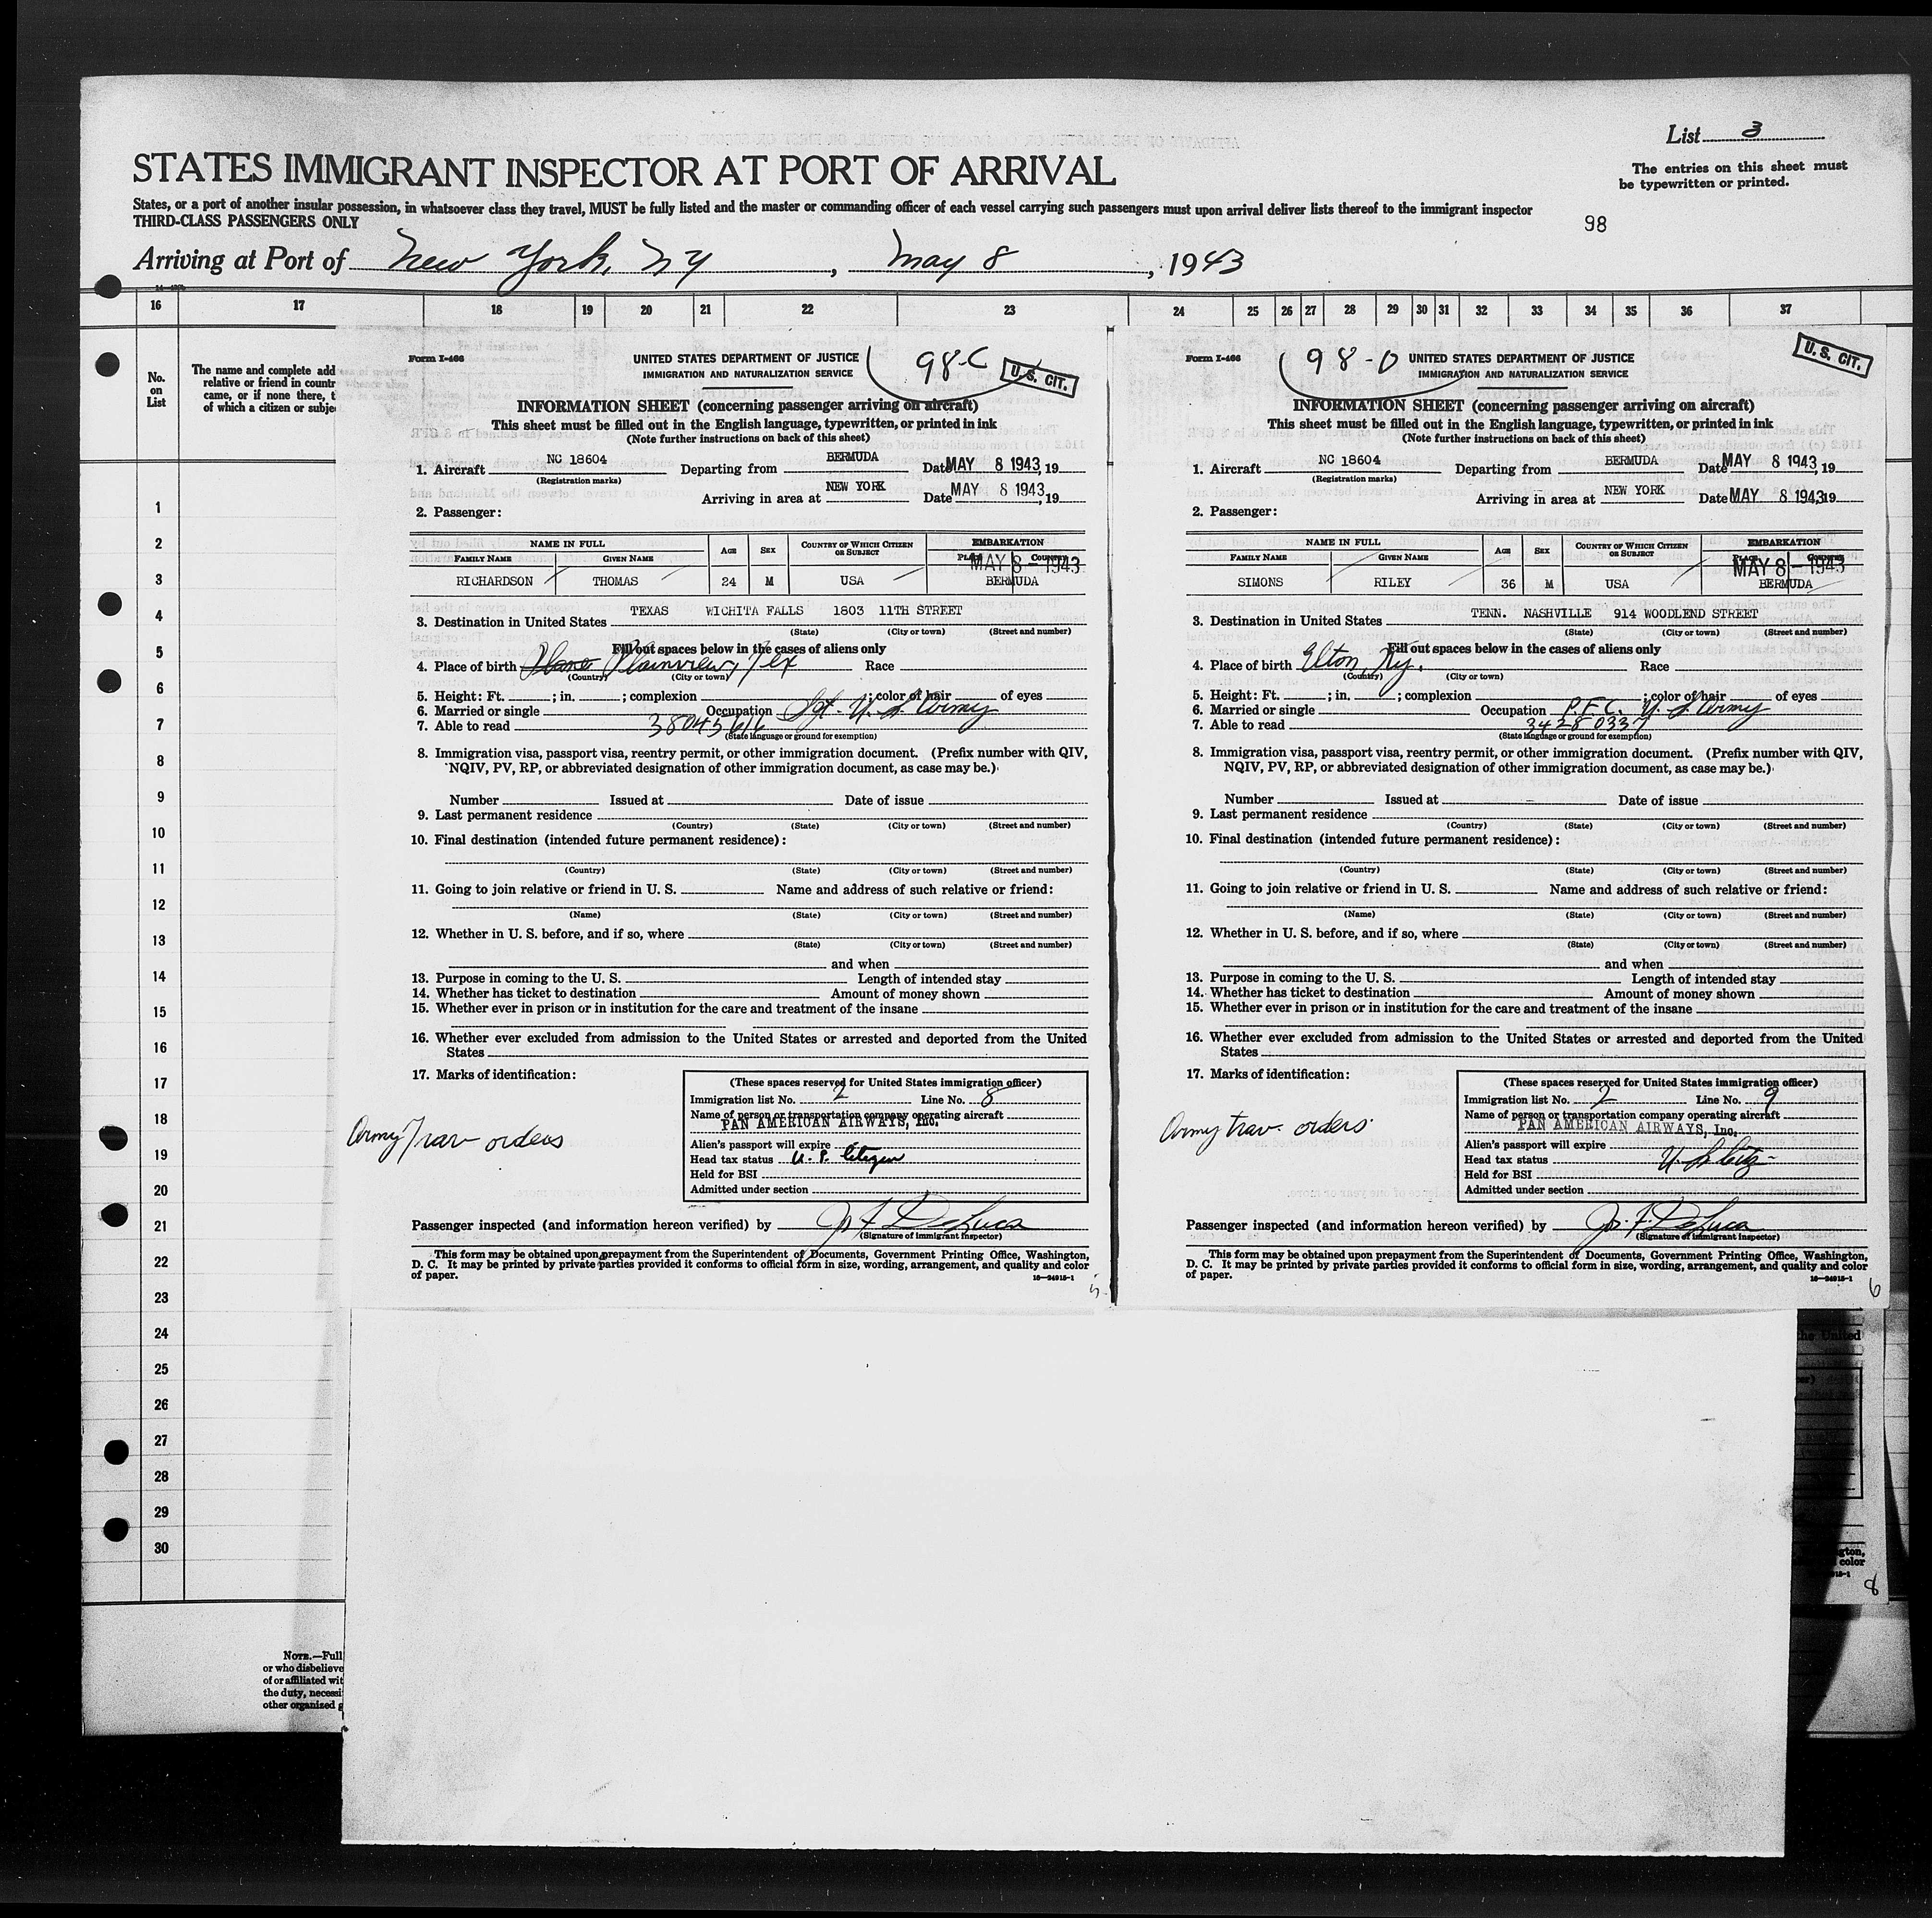 List 3
STATES IMMIGRANT INSPECTOR AT PORT OF ARRIVAL
The entries on this sheet must
be typewritten or printed.
States, or a port of another insular possession, in whatsoever class they travel, MUST be fully listed and the master or commanding officer of each vessel carrying such passengers must upon arrival deliver lists thereof to the immigrant inspector
THIRD-CLASS PASSENGERS ONLY
98
Arriving at Port of New York, NY, May 8, 1943
16 17 18 19 20 21 22 23 24 25 26 27 28 29 30 31 32 33 34 35 36 37
No.
on
List
The name and complete add
relative or friend in countr
came, or if none there, t
of which a citizen or subje
1
2
3
4
5
6
7
8
9
10
11
12
13
14
15
16
17
18
19
20
21
22
23
24
25
26
27
28
29
30
NOTE.—Full
or who disbelieve
of or affiliated wit
the duty, necessi
other organized g
Form I-466
UNITED STATES DEPARTMENT OF JUSTICE
IMMIGRATION AND NATURALIZATION SERVICE
98-C
U. S. CIT.
INFORMATION SHEET (concerning passenger arriving on aircraft)
This sheet must be filled out in the English language, typewritten, or printed in ink
(Note further instructions on back of this sheet)
1. Aircraft NC 18604 Departing from BERMUDA Date MAY 8 1943, 19
(Registration marks)
Arriving in area at NEW YORK Date MAY 8 1943, 19
2. Passenger:
NAME IN FULL AGE SEX COUNTRY OF WHICH CITIZEN OR SUBJECT EMBARKATION
FAMILY NAME GIVEN NAME PLACE COUNTRY
MAY 8 - 1943
RICHARDSON THOMAS 24 M USA BERMUDA
3. Destination in United States TEXAS WICHITA FALLS 1803 11TH STREET
(State) (City or town) (Street and number)
Fill out spaces below in the cases of aliens only
4. Place of birth Plainview, Tex Race
(Country) (City or town)
5. Height: Ft. ; in. ; complexion ; color of hair of eyes
6. Married or single Occupation Sgt. U.S. Army
7. Able to read 38045616
(State language or ground for exemption)
8. Immigration visa, passport visa, reentry permit, or other immigration document. (Prefix number with QIV,
NQIV, PV, RP, or abbreviated designation of other immigration document, as case may be.)
Number Issued at Date of issue
9. Last permanent residence
(Country) (State) (City or town) (Street and number)
10. Final destination (intended future permanent residence):
(Country) (State) (City or town) (Street and number)
11. Going to join relative or friend in U. S. Name and address of such relative or friend:
(Name) (State) (City or town) (Street and number)
12. Whether in U. S. before, and if so, where
(State) (City or town) (Street and number)
and when
13. Purpose in coming to the U. S. Length of intended stay
14. Whether has ticket to destination Amount of money shown
15. Whether ever in prison or in institution for the care and treatment of the insane
16. Whether ever excluded from admission to the United States or arrested and deported from the United
States
17. Marks of identification:
Army Trav orders
(These spaces reserved for United States immigration officer)
Immigration list No. 2 Line No. 8
Name of person or transportation company operating aircraft
PAN AMERICAN AIRWAYS, Inc.
Alien's passport will expire
Head tax status U. S. Citizen
Held for BSI
Admitted under section
Passenger inspected (and information hereon verified) by Jos F DeLuca
(Signature of immigrant inspector)
This form may be obtained upon prepayment from the Superintendent of Documents, Government Printing Office, Washington,
D. C. It may be printed by private parties provided it conforms to official form in size, wording, arrangement, and quality and color
of paper.
16—24915-1
Form I-466
98-D
UNITED STATES DEPARTMENT OF JUSTICE
IMMIGRATION AND NATURALIZATION SERVICE
U. S. CIT.
INFORMATION SHEET (concerning passenger arriving on aircraft)
This sheet must be filled out in the English language, typewritten, or printed in ink
(Note further instructions on back of this sheet)
1. Aircraft NC 18604 Departing from BERMUDA Date MAY 8 1943, 19
(Registration marks)
Arriving in area at NEW YORK Date MAY 8 1943, 19
2. Passenger:
NAME IN FULL AGE SEX COUNTRY OF WHICH CITIZEN OR SUBJECT EMBARKATION
FAMILY NAME GIVEN NAME PLACE COUNTRY
MAY 8 - 1943
SIMONS RILEY 36 M USA BERMUDA
3. Destination in United States TENN. NASHVILLE 914 WOODLEND STREET
(State) (City or town) (Street and number)
Fill out spaces below in the cases of aliens only
4. Place of birth Elton, Ky. Race
(Country) (City or town)
5. Height: Ft. ; in. ; complexion ; color of hair of eyes
6. Married or single Occupation P.F.C. U.S. Army
7. Able to read 34280337
(State language or ground for exemption)
8. Immigration visa, passport visa, reentry permit, or other immigration document. (Prefix number with QIV,
NQIV, PV, RP, or abbreviated designation of other immigration document, as case may be.)
Number Issued at Date of issue
9. Last permanent residence
(Country) (State) (City or town) (Street and number)
10. Final destination (intended future permanent residence):
(Country) (State) (City or town) (Street and number)
11. Going to join relative or friend in U. S. Name and address of such relative or friend:
(Name) (State) (City or town) (Street and number)
12. Whether in U. S. before, and if so, where
(State) (City or town) (Street and number)
and when
13. Purpose in coming to the U. S. Length of intended stay
14. Whether has ticket to destination Amount of money shown
15. Whether ever in prison or in institution for the care and treatment of the insane
16. Whether ever excluded from admission to the United States or arrested and deported from the United
States
17. Marks of identification:
Army trav. orders.
(These spaces reserved for United States immigration officer)
Immigration list No. 2 Line No. 9
Name of person or transportation company operating aircraft
PAN AMERICAN AIRWAYS, Inc.
Alien's passport will expire
Head tax status U. S. Citz
Held for BSI
Admitted under section
Passenger inspected (and information hereon verified) by Jos. F. DeLuca
(Signature of immigrant inspector)
This form may be obtained upon prepayment from the Superintendent of Documents, Government Printing Office, Washington,
D. C. It may be printed by private parties provided it conforms to official form in size, wording, arrangement, and quality and color
of paper.
16—24915-1
6
the United
gton,
color
8